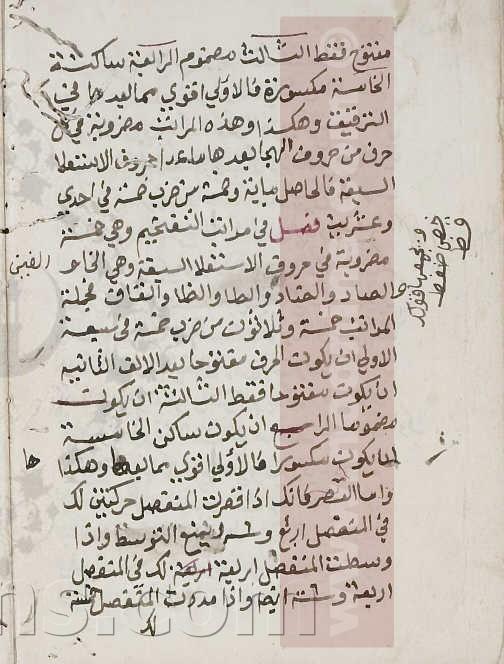 مفتوح فقط الثالث مضموم الرابعة ساكنة
الخامسة مكسورة فالاولي اقوي مما بعدها في
الترقيق وهكذا وهذه المراتب مضروبة في كل
حرف من حروف الهجا بعدها ما عدا حروف الاستعلا
السبعة فالحاصل مباية وخمسة من ضرب خمسة في احدي
وعشرين فصل في مراتب التفخيم وهي خمسة
مضروبة في حروف الاستعلا السبعة وهي الخا
والصاد والضاد والطا والظا والقاف فجملة
المراتب خمسة وثلاثون من ضرب خمسة في سبعة
الاولي ان يكون الحرف مفتوحا بعد الالف الثانيه
ان يكون مفتوحا فقط الثالثة ان يكون
مضموما الرابع ان يكون ساكن الخامسة
ان يكون مكسورا فالأولي اقوي مما بعدها وهكذا
واما القصر فانك اذا قصرت المنفصل حركتين لك
في المتصل اربع وستة ويمتنع التوسط واذا
وسطت المنفصل اربعة اربعة لك في المتصل
اربعة وستة ايضا واذا مددت المنفصل خمسة
لك
الغين
ها
خص ضغط
قظ
ns.com